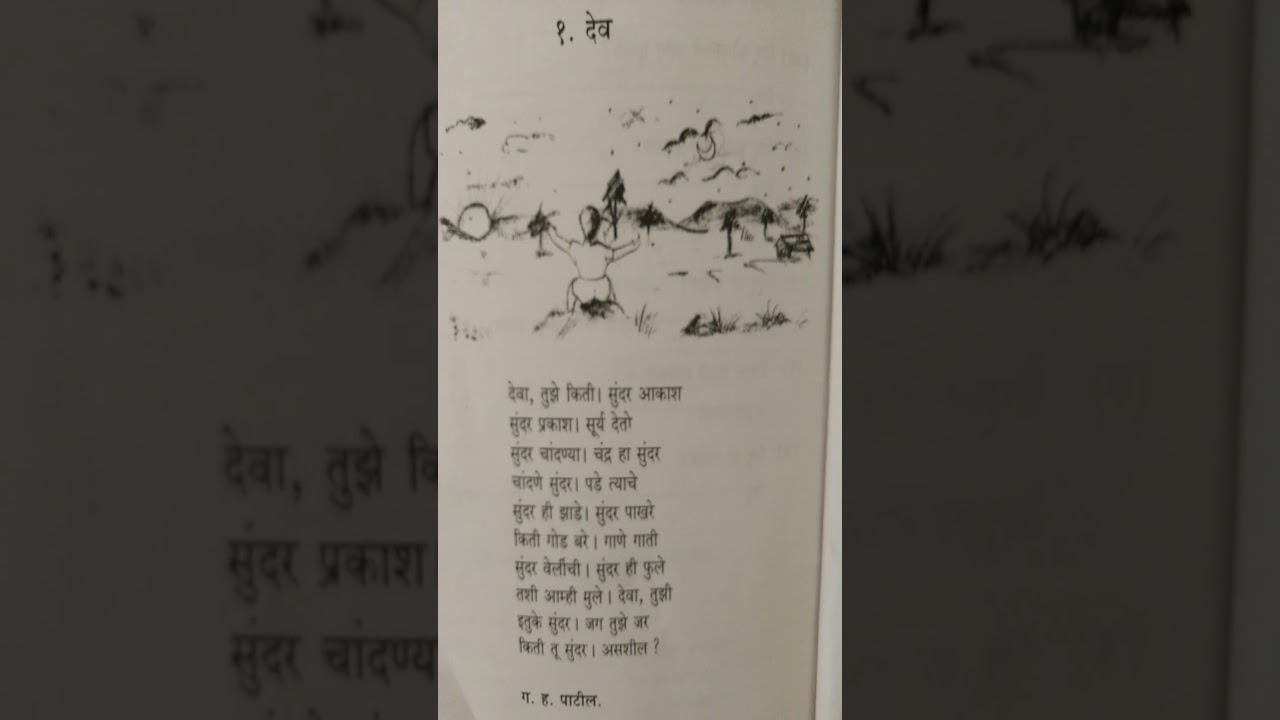 १. देव
देवा, तुझे किती। सुंदर आकाश
सुंदर प्रकाश। सूर्य देतो
सुंदर चांदण्या। चंद्र हा सुंदर
चांदणे सुंदर। पडे त्याचे
सुंदर ही झाडे। सुंदर पाखरे
किती गोड बरे। गाणे गाती
सुंदर वेलींची। सुंदर ही फुले
तशी आम्ही मुले। देवा, तुझी
इतुके सुंदर। जग तुझे जर
किती तू सुंदर। असशील ?
ग. ह. पाटील.